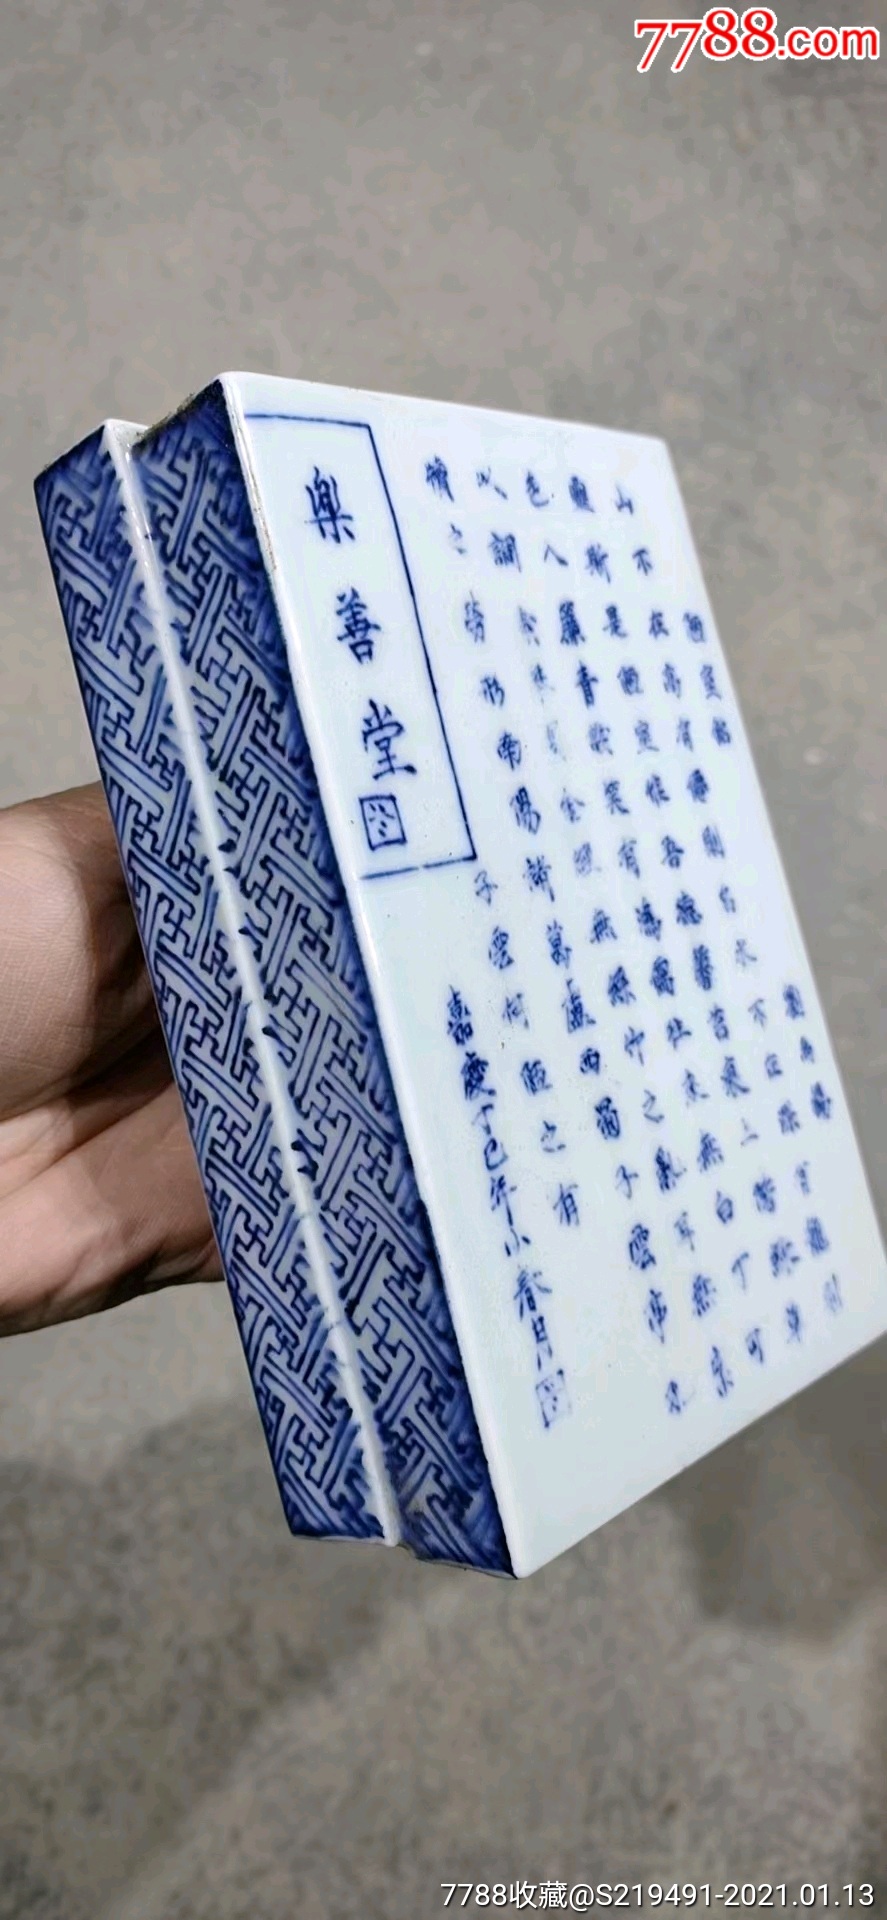 陋室銘 劉禹錫
山不在高有僊則名水不在深有龍則
靈斯是陋室惟吾德馨苔痕上階綠草
色入簾青談笑有鴻儒往來無白丁可
以調素琴閱金經無絲竹之亂耳無案
牘之勞形南陽諸葛廬西蜀子雲亭孔
子雲何陋之有
嘉慶丁巳年小春月
樂善堂
7788.com
7788收藏@S219491-2021.01.13